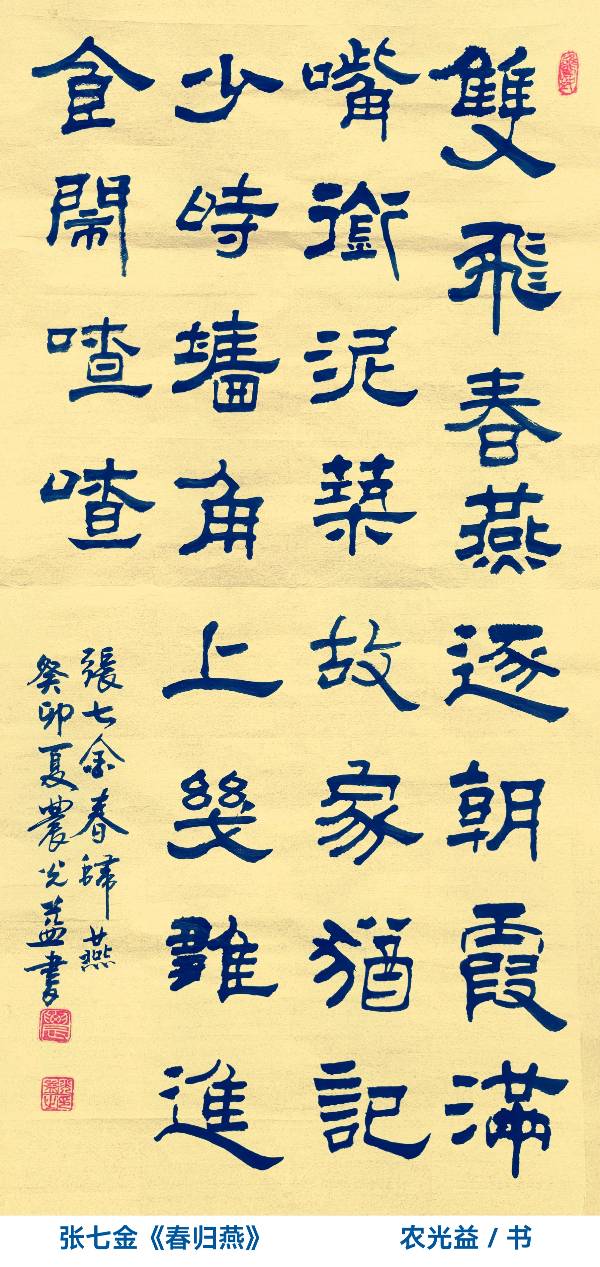 雙飛春燕逐朝霞滿
嘴銜泥築故家猶記
少時墻角上幾雛進
食鬧喳喳
張七金春歸燕
癸卯夏農光益書
张七金《春归燕》 农光益 / 书